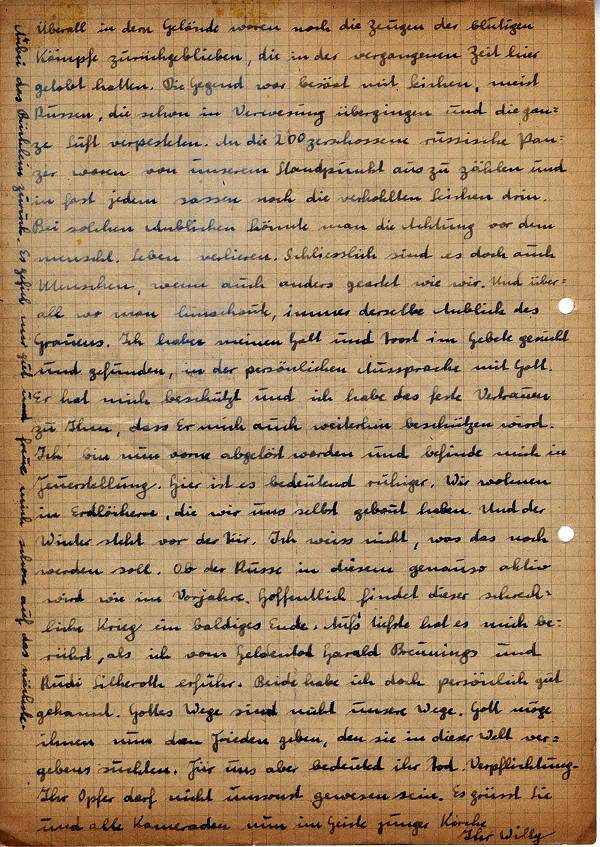 Überall in dem Gelände waren noch die Zeugen der blutigen
Kämpfe zurückgeblieben, die in der vergangenen Zeit hier
getobt hatten. Die Gegend war besäet mit Leichen, meist
Russen, die schon in Verwesung übergingen und die gan-
ze Luft verpesteten. An die 200 zerschossene russische Pan-
zer waren von unserem Standpunkt aus zu zählen und
in fast jedem sassen noch die verkohlten Leichen drin.
Bei solchen Anblicken könnte man die Achtung vor dem
menschl. Leben verlieren. Schliesslich sind es doch auch
Menschen, wenn auch anders geartet wie wir. Und über-
all wo man hinschaute, immer derselbe Anblick des
Grauens. Ich habe meinen Halt und Trost im Gebete gesucht
und gefunden, in der persönlichen Aussprache mit Gott.
Er hat mich beschützt und ich habe das feste Vertrauen
zu Ihm, dass Er mich auch weiterhin beschützen wird.
Ich bin nun vorne abgelöst worden und befinde mich in
Feuerstellung. Hier ist es bedeutend ruhiger. Wir wohnen
in Erdlöchern, die wir uns selbst gebaut haben. Und der
Winter steht vor der Tür. Ich weiss nicht, was das noch
werden soll. Ob der Russe in diesem genauso aktiv
wird wie im Vorjahre. Hoffentlich findet dieser schreck-
liche Krieg ein baldiges Ende. Aufs tiefste hat es mich be-
rührt, als ich vom Heldentod Harald Breunings und
Rudi Silheroth erfuhr. Beide habe ich doch persönlich gut
gekannt. Gottes Wege sind nicht unsere Wege. Gott möge
ihnen nun den Frieden geben, den sie in dieser Welt ver-
gebens suchten. Für uns aber bedeuted ihr Tod Verpflichtung.
Ihr Opfer darf nicht umsonst gewesen sein. Es grüsst Sie
und alle Kameraden nun im Geiste junger Kirche
Ihr Willy
das Büchlein zurück. Es gefiel mir gut und freue mich schon auf das nächste.